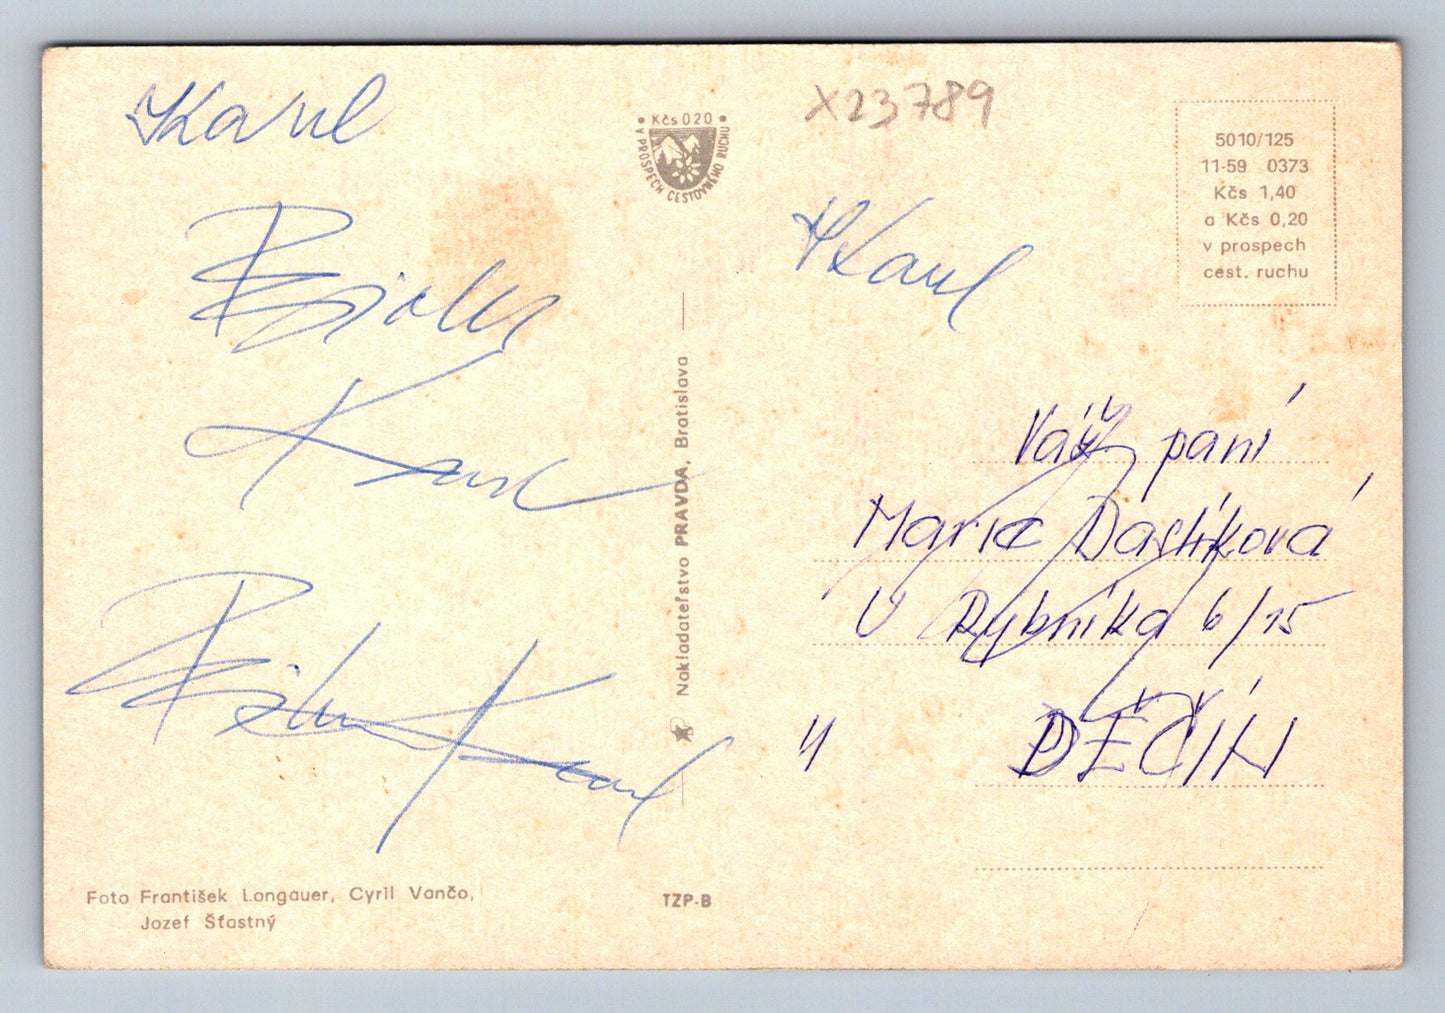 Karel
• Kčs 0.20 •
V PROSPECH CESTOVNÉHO RUCHU
X23789
5010/125
11-59 0373
Kčs 1,40
a Kčs 0,20
v prospech
cest. ruchu
Karel
Karel
Nakladateľstvo PRAVDA, Bratislava
Váž paní
Marie Dastíková
U Rybníka 6/15
DĚČÍN
Foto František Longauer, Cyril Vančo,
Jozef Šťastný
TZP-B